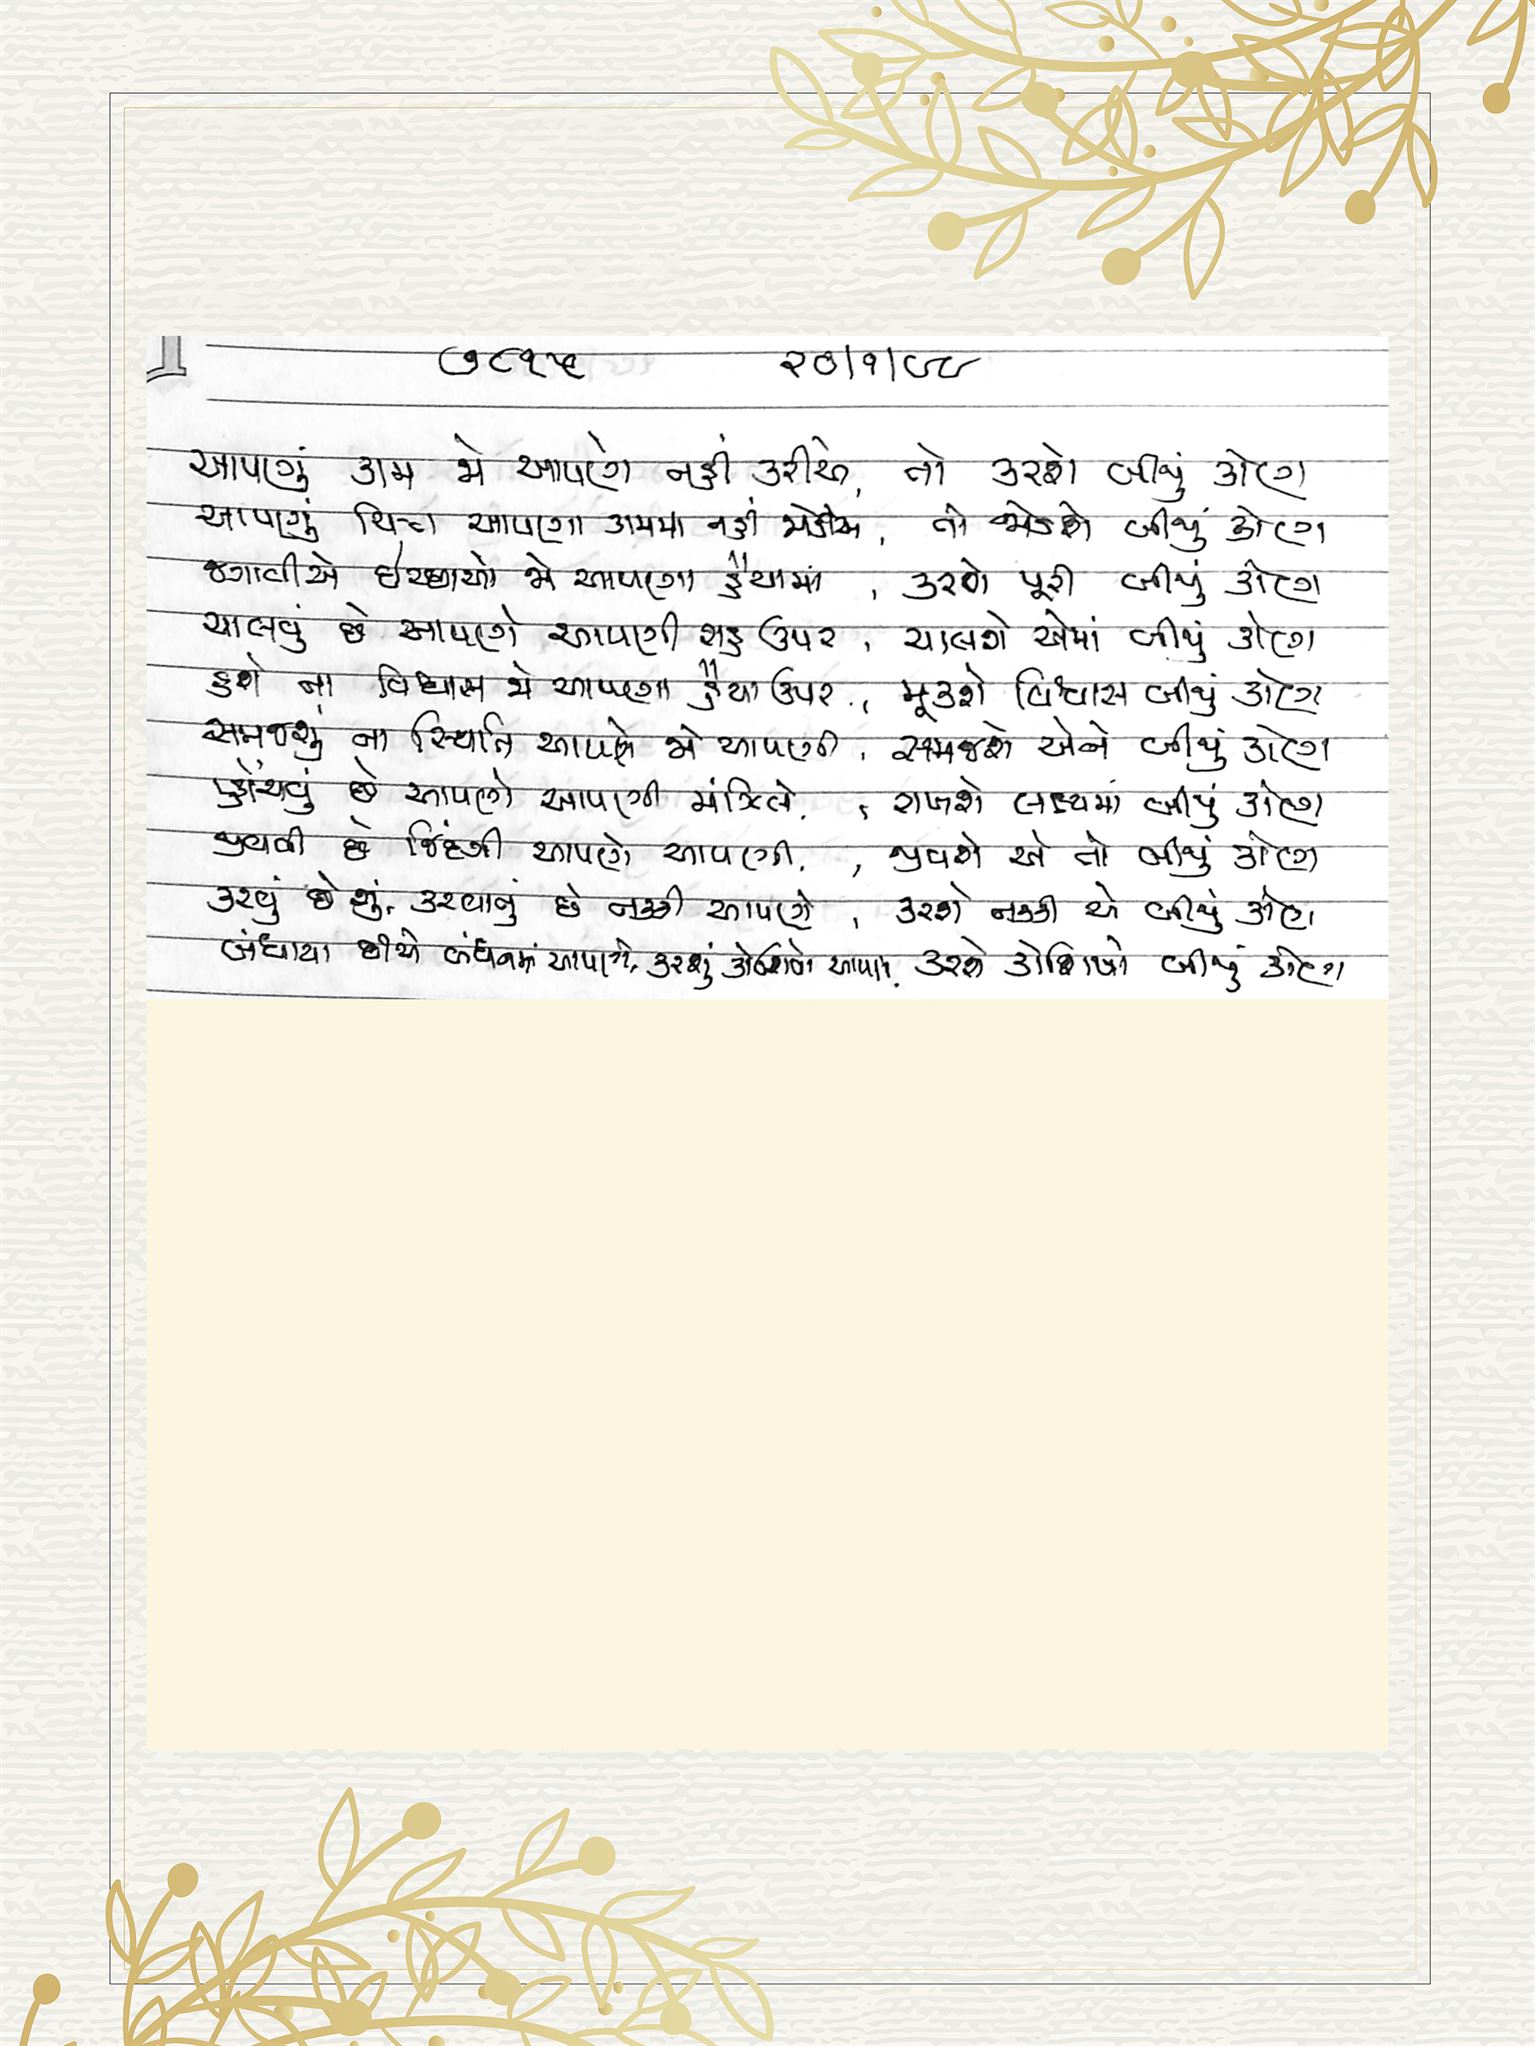 ૭૮૧૫ ૨૭/૧/૯૯
આપણું કામ જો આપણે નહીં કરીએ, તો કરશે બીજું કોણ
આપણું ચિત્ત આપણા કામમાં નહીં જોડીએ, તો જોડશે બીજું કોણ
જગાવીએ ઇચ્છાઓ જો આપણા હૈયામાં, કરશે પૂરી બીજું કોણ
ચાલવું છે આપણે આપણી રાહ ઉપર, ચાલશે એમાં બીજું કોણ
હશે ના વિશ્વાસ જો આપણા હૈયા ઉપર, મૂકશે વિશ્વાસ બીજું કોણ
સમજશું ના સ્થિતિ આપણે જો આપણી, સમજશે એને બીજું કોણ
પ્હોંચવું છે આપણે આપણી મંઝિલે, રાખશે લક્ષ્યમાં બીજું કોણ
જીવવી છે જિંદગી આપણે આપણી, જીવશે એ તો બીજું કોણ
કરવું છે શું, કરવાનું છે નક્કી આપણે, કરશે નક્કી એ બીજું કોણ
બંધાયા છીએ બંધનમાં આપણે, કરશું કોશિશો આપણે, કરશે કોશિશો બીજું કોણ